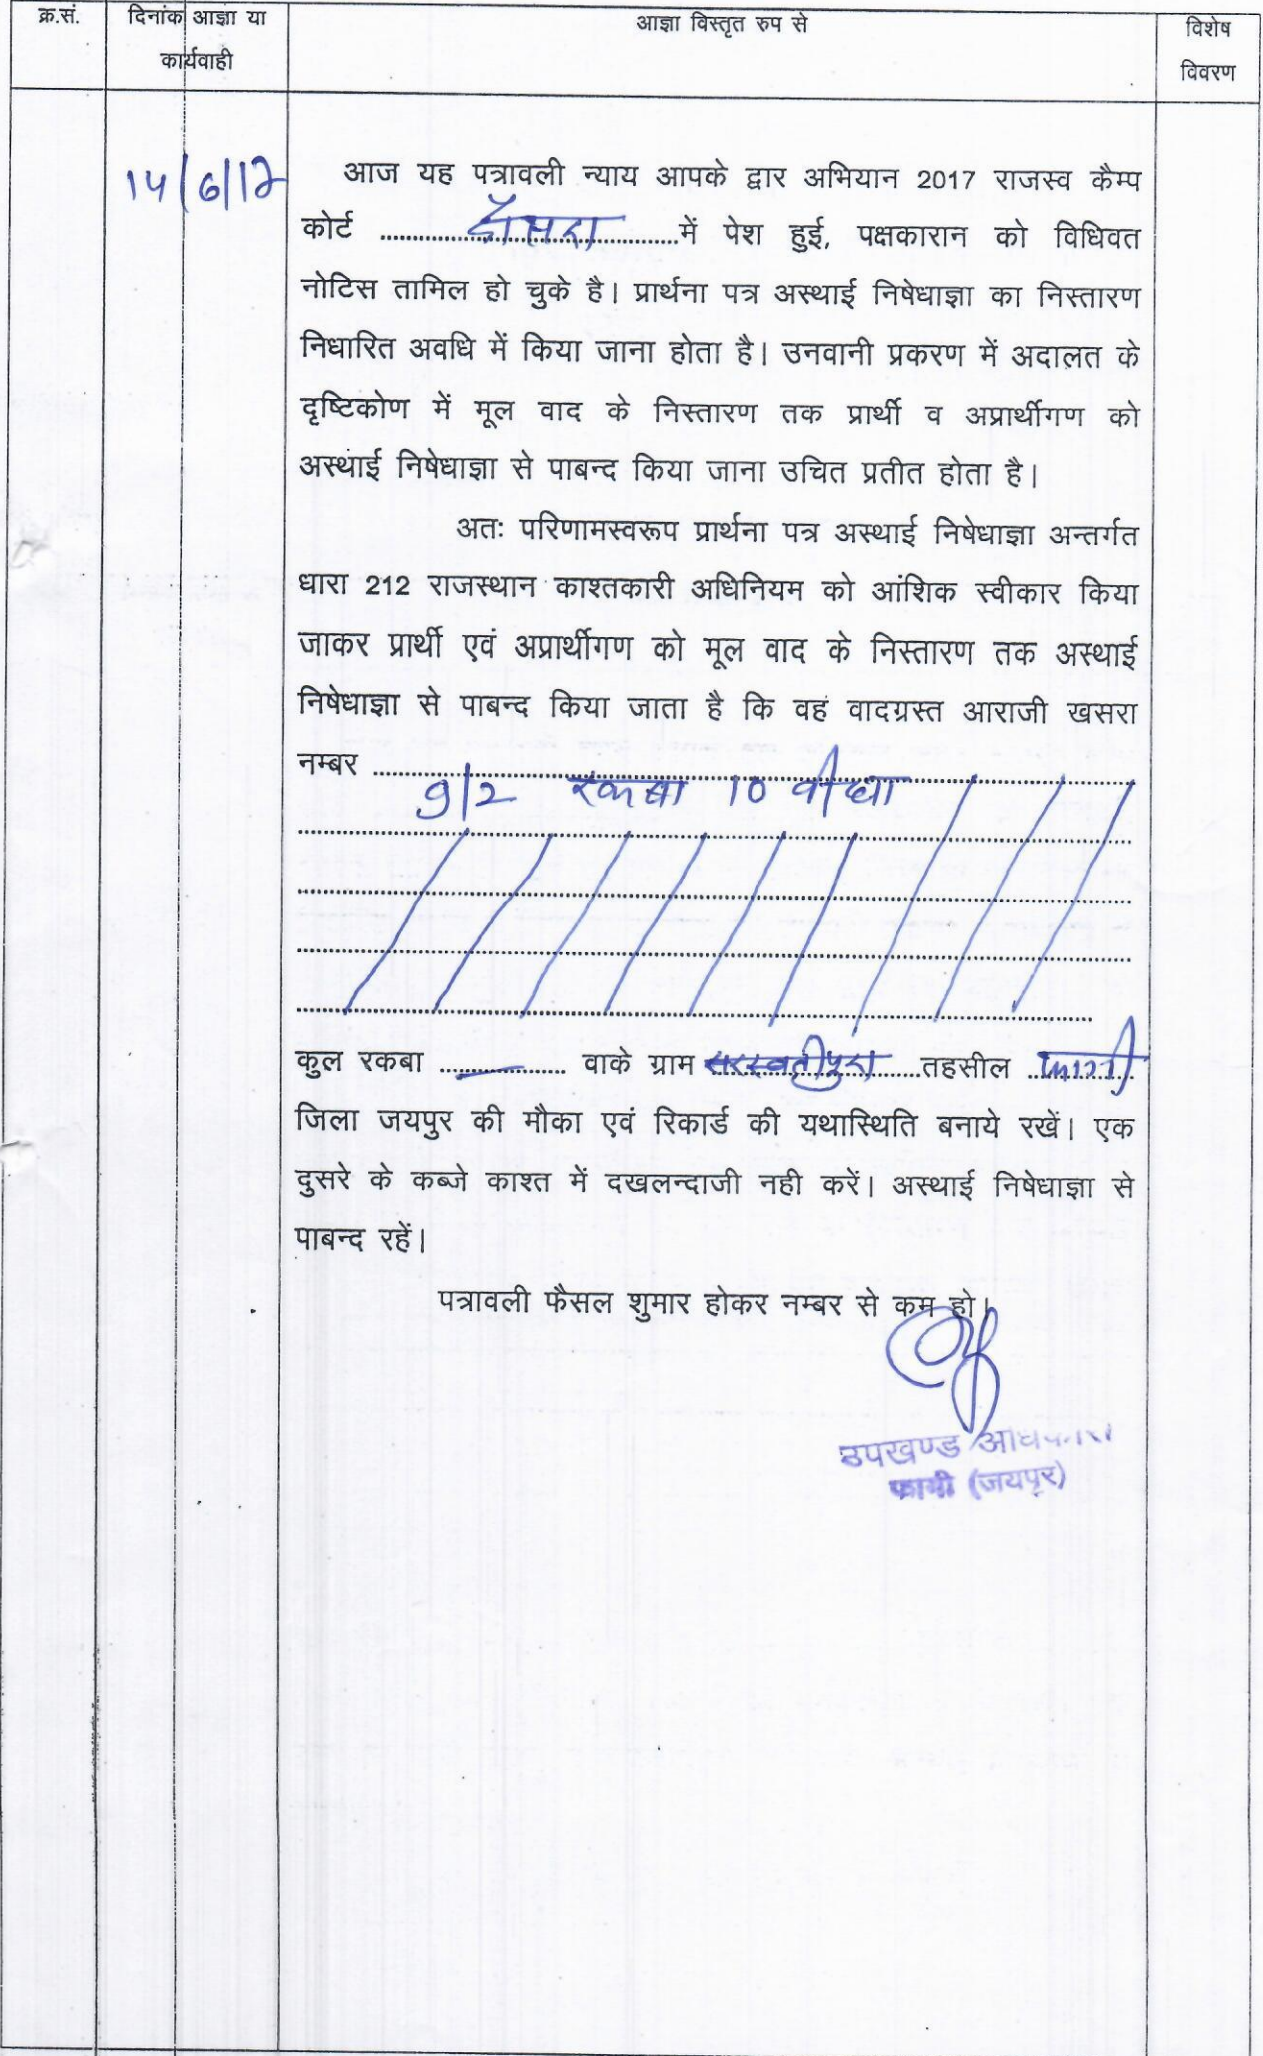 क्र.सं. दिनांक आज्ञा या आज्ञा विस्तृत रुप से विशेष
कार्यवाही विवरण
14/6/17 आज यह पत्रावली न्याय आपके द्वार अभियान 2017 राजस्व कैम्प
कोर्ट ................................ में पेश हुई, पक्षकारान को विधिवत
नोटिस तामिल हो चुके है। प्रार्थना पत्र अस्थाई निषेधाज्ञा का निस्तारण
निधारित अवधि में किया जाना होता है। उनवानी प्रकरण में अदालत के
दृष्टिकोण में मूल वाद के निस्तारण तक प्रार्थी व अप्रार्थीगण को
अस्थाई निषेधाज्ञा से पाबन्द किया जाना उचित प्रतीत होता है।
अतः परिणामस्वरूप प्रार्थना पत्र अस्थाई निषेधाज्ञा अन्तर्गत
धारा 212 राजस्थान काश्तकारी अधिनियम को आंशिक स्वीकार किया
जाकर प्रार्थी एवं अप्रार्थीगण को मूल वाद के निस्तारण तक अस्थाई
निषेधाज्ञा से पाबन्द किया जाता है कि वह वादग्रस्त आराजी खसरा
नम्बर ................................
9/2 रकबा 10 बीघा
कुल रकबा ............ वाके ग्राम सरस्वतीपुरा तहसील फागी
जिला जयपुर की मौका एवं रिकार्ड की यथास्थिति बनाये रखें। एक
दुसरे के कब्जे काश्त में दखलन्दाजी नही करें। अस्थाई निषेधाज्ञा से
पाबन्द रहें।
पत्रावली फैसल शुमार होकर नम्बर से कम हो।
उपखण्ड अधिकारी
फागी (जयपुर)